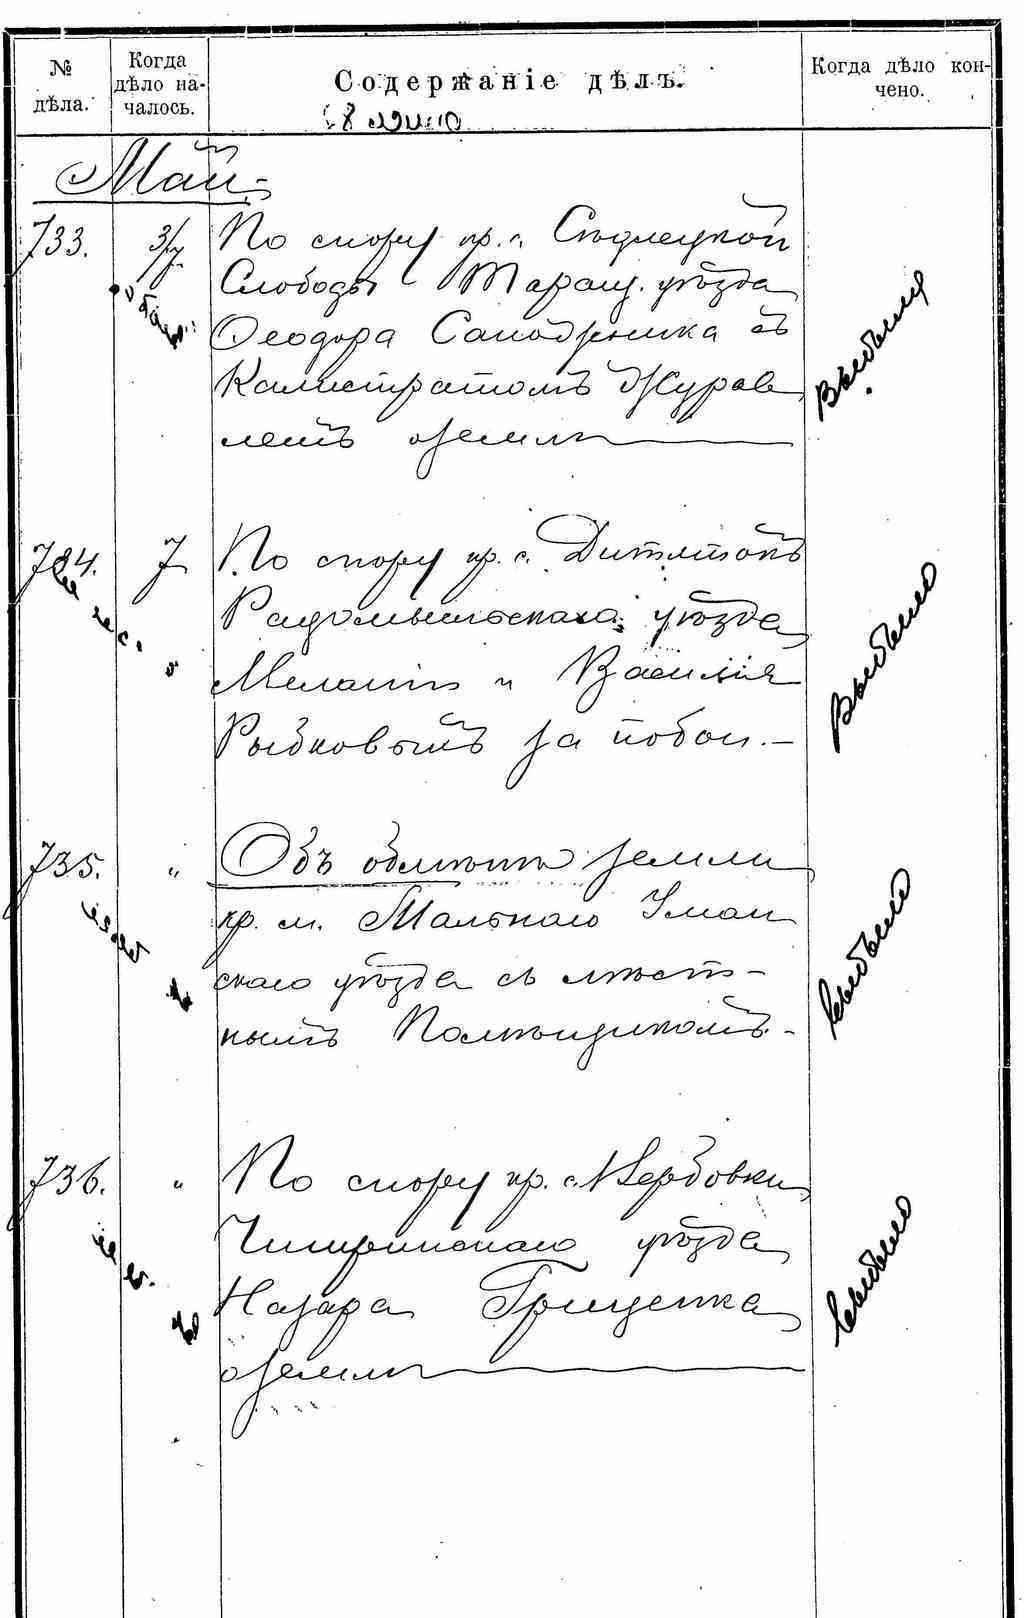 № дѣла.
Когда дѣло на-
чалось.
Содержаніе дѣлъ.
Когда дѣло кон-
чено.
Май
733. 3/7 По спору кр. с.
Слободы Таращ. уѣзда
Ѳеодора Сапожника съ
Калистратомъ Журав
лемъ о земли
Выбыли
734. 7 По спору кр. с. Дитятокъ
Радомысльскаго уѣзда
Меланіи и Василія
Рыбковымъ за побои.—
Выбыло
735. " Объ обмѣнѣ земли
кр. м. Тальнаго Уман
скаго уѣзда съ мѣст-
нымъ Помѣщикомъ.-
выбыло
736. " По спору кр. с. Вербовки
Чигиринскаго уѣзда
Назара Грищенка
о земли
выбыло